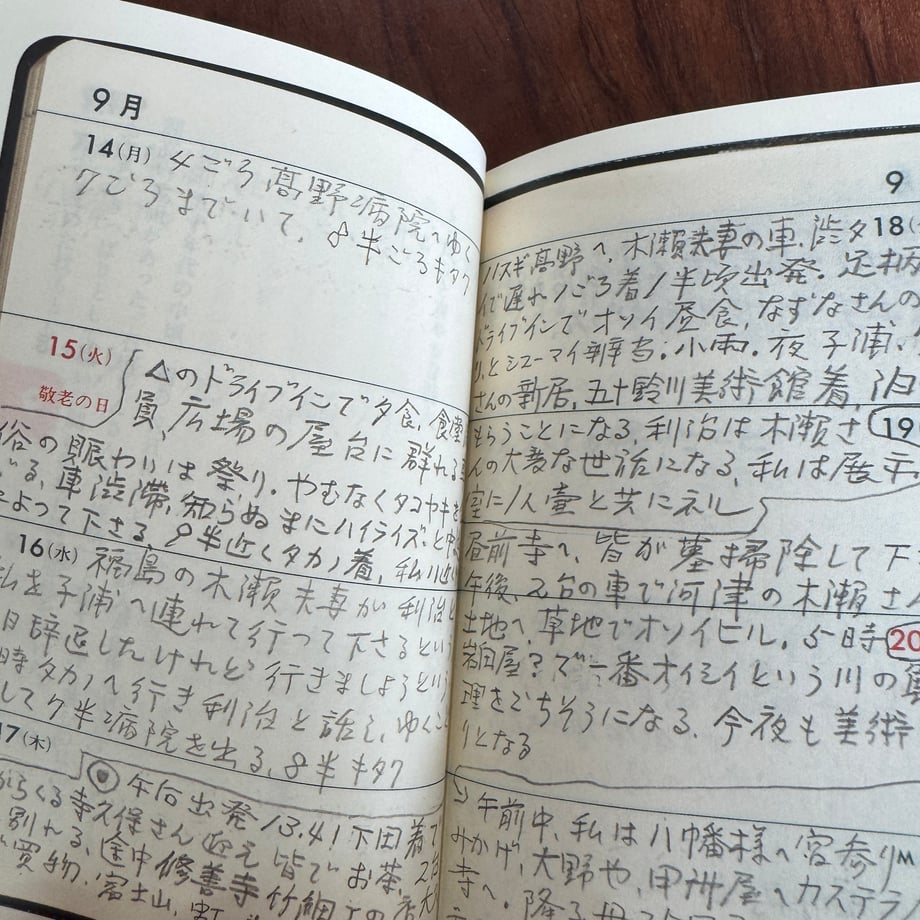 9月
14(月) 4ごろ高野病院へゆく
7ごろまでいて、8半ごろキタク
15(火) △のドライブインで夕食、食堂
敬老の日 員、広場の屋台に群れる
俗の賑わいは祭り。やむなくタコヤキを
る、車渋滞、知らぬまにハイライズ、と
よって下さる 8半近くタカノ着、私
16(水) 福島の木瀬夫妻が利治と
私を子浦へ連れて行って下さるという
日辞退したけれど行きましょうという
時タカノへ行き利治と話し、ゆくこと
して7半病院を出る、8半キタク
17(木)
午后出発 13.41下田着
からくる寺久保さん迎え皆でお茶、
別れる、途中修善寺竹細工の店
買物、富士山、虹
9
18(
ハスギ高野へ、木瀬夫妻の車、渋タ
イで遅れ1ごろ着1半頃出発。足柄
ドライブインでオソイ昼食、なずなさんの
、とシューマイ辨当。小雨。夜子浦、
さんの新居、五十鈴川美術館着、泊
もらうことになる、利治は木瀬さ 19
んの大変な世話になる、私は展示
室に1人壷と共にネル
昼前寺へ、皆が墓掃除して下
午後、2台の車で河津の木瀬さん
土地へ、草地でオソイヒル。5時 20
屋?で一番オイシイという川の
理をごちそうになる、今夜も美術
りとなる
午前中、私は八幡様へ宮参り
みかげ、大野や、甲州屋へカステラ
寺へ。